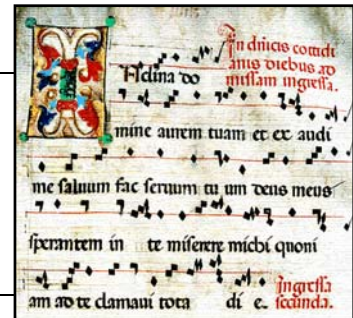 In dnicis cottidi
anis diebus ad
missam ingressa.
INclina do
mine aurem tuam et ex audi
me saluum fac seruum tu um deus meus
sperantem in te miserere michi quoni
am ad te clamaui tota di e.
Ingressa
secunda.